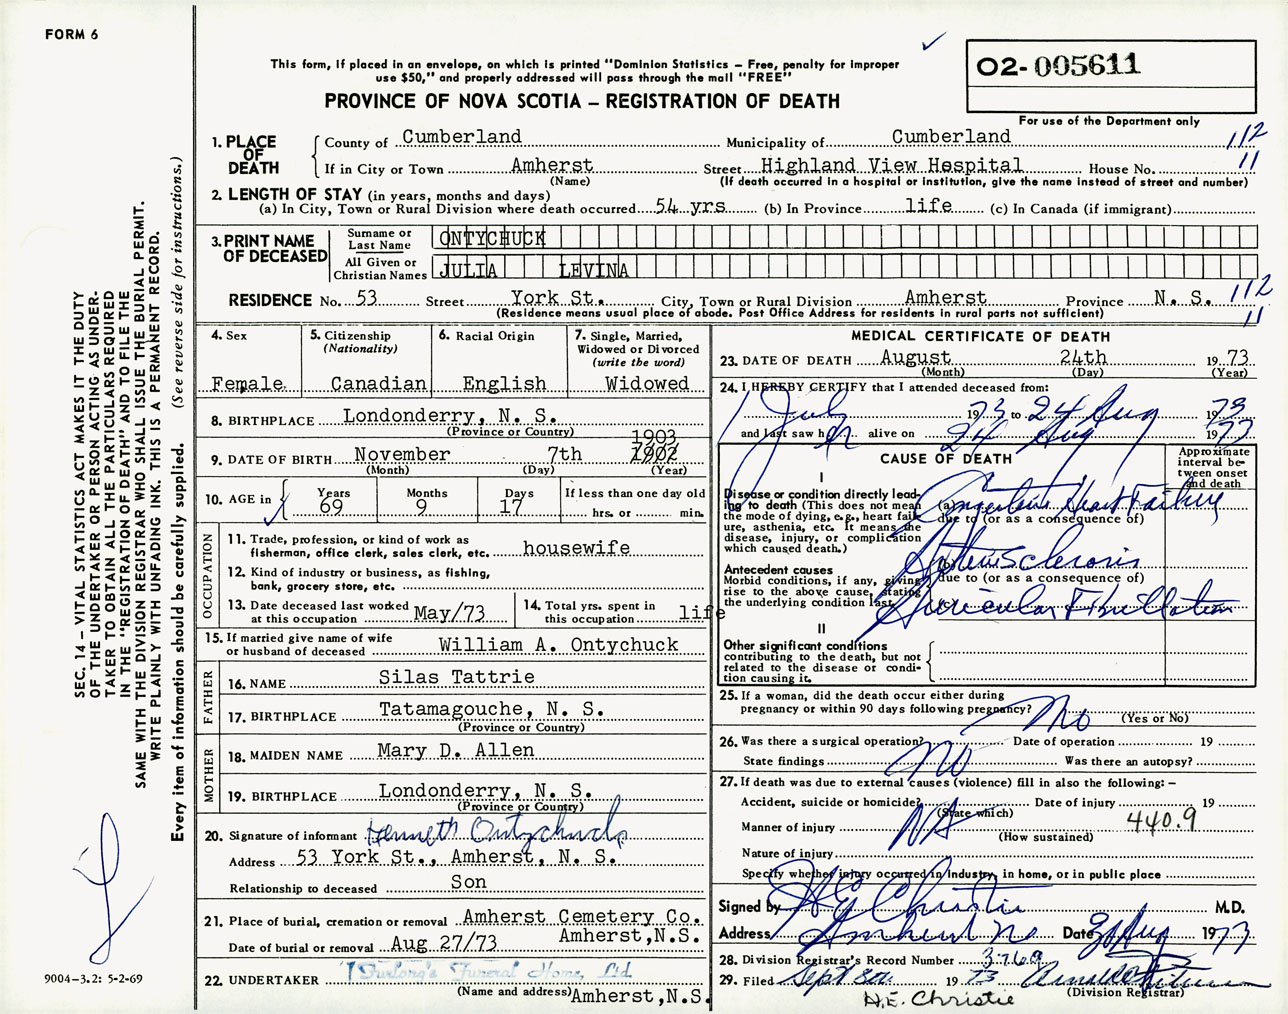 FORM 6
This form, if placed in an envelope, on which is printed "Dominion Statistics – Free, penalty for improper
use $50," and properly addressed will pass through the mail "FREE"
PROVINCE OF NOVA SCOTIA – REGISTRATION OF DEATH
02-005611
For use of the Department only
1. PLACE OF DEATH
County of Cumberland Municipality of Cumberland 112
If in City or Town Amherst Street Highland View Hospital House No. 11
(Name) (If death occurred in a hospital or institution, give the name instead of street and number)
2. LENGTH OF STAY (in years, months and days)
(a) In City, Town or Rural Division where death occurred 54 yrs (b) In Province life (c) In Canada (if immigrant)
3. PRINT NAME OF DECEASED
Surname or Last Name ONTYCHUCK
All Given or Christian Names JULIA LEVINA
RESIDENCE No. 53 Street York St. City, Town or Rural Division Amherst Province N. S. 112
(Residence means usual place of abode. Post Office Address for residents in rural parts not sufficient) 11
4. Sex
Female
5. Citizenship
(Nationality)
Canadian
6. Racial Origin
English
7. Single, Married,
Widowed or Divorced
(write the word)
Widowed
8. BIRTHPLACE Londonderry, N. S.
(Province or Country)
1903
9. DATE OF BIRTH November 7th 1902
(Month) (Day) (Year)
10. AGE in
Years 69
Months 9
Days 17
If less than one day old
hrs. or min.
OCCUPATION
11. Trade, profession, or kind of work as
fisherman, office clerk, sales clerk, etc. housewife
12. Kind of industry or business, as fishing,
bank, grocery store, etc.
13. Date deceased last worked
at this occupation May/73
14. Total yrs. spent in
this occupation life
15. If married give name of wife
or husband of deceased William A. Ontychuck
FATHER
16. NAME Silas Tattrie
17. BIRTHPLACE Tatamagouche, N. S.
(Province or Country)
MOTHER
18. MAIDEN NAME Mary D. Allen
19. BIRTHPLACE Londonderry, N. S.
(Province or Country)
20. Signature of informant Kenneth Ontychuck
Address 53 York St., Amherst, N. S.
Relationship to deceased Son
21. Place of burial, cremation or removal Amherst Cemetery Co.
Amherst, N.S.
Date of burial or removal Aug 27/73
22. UNDERTAKER Furlong's Funeral Home, Ltd
(Name and address) Amherst, N.S.
MEDICAL CERTIFICATE OF DEATH
23. DATE OF DEATH August 24th 1973
(Month) (Day) (Year)
24. I HEREBY CERTIFY that I attended deceased from:
1 July 1973 to 24 Aug 1973
and last saw her alive on 24 Aug 1973
CAUSE OF DEATH
Approximate
interval be-
tween onset
and death
I
Disease or condition directly lead-
ing to death (This does not mean
the mode of dying, e.g., heart fail-
ure, asthenia, etc. It means the
disease, injury, or complication
which caused death.)
(a) Congestive Heart Failure
due to (or as a consequence of)
Antecedent causes
Morbid conditions, if any, giving
rise to the above cause, stating
the underlying condition last.
(b) Arteriosclerosis
due to (or as a consequence of)
(c) Auricular Fibrillation
II
Other significant conditions
contributing to the death, but not
related to the disease or condi-
tion causing it.
25. If a woman, did the death occur either during
pregnancy or within 90 days following pregnancy? No (Yes or No)
26. Was there a surgical operation? No Date of operation 19
State findings Was there an autopsy?
27. If death was due to external causes (violence) fill in also the following: –
Accident, suicide or homicide? NA Date of injury 19
(State which)
440.9
Manner of injury
(How sustained)
Nature of injury
Specify whether injury occurred in industry, in home, or in public place
Signed by H E Christie M.D.
Address Amherst NS Date 30 Aug 1973
28. Division Registrar's Record Number 3769
29. Filed Sept 8th 1973
(Division Registrar)
H.E. Christie
SEC. 14 – VITAL STATISTICS ACT MAKES IT THE DUTY
OF THE UNDERTAKER OR PERSON ACTING AS UNDER-
TAKER TO OBTAIN ALL THE PARTICULARS REQUIRED
IN THE "REGISTRATION OF DEATH" AND TO FILE THE
SAME WITH THE DIVISION REGISTRAR WHO SHALL ISSUE THE BURIAL PERMIT.
WRITE PLAINLY WITH UNFADING INK. THIS IS A PERMANENT RECORD.
Every item of information should be carefully supplied. (See reverse side for instructions.)
9004–3.2: 5-2-69